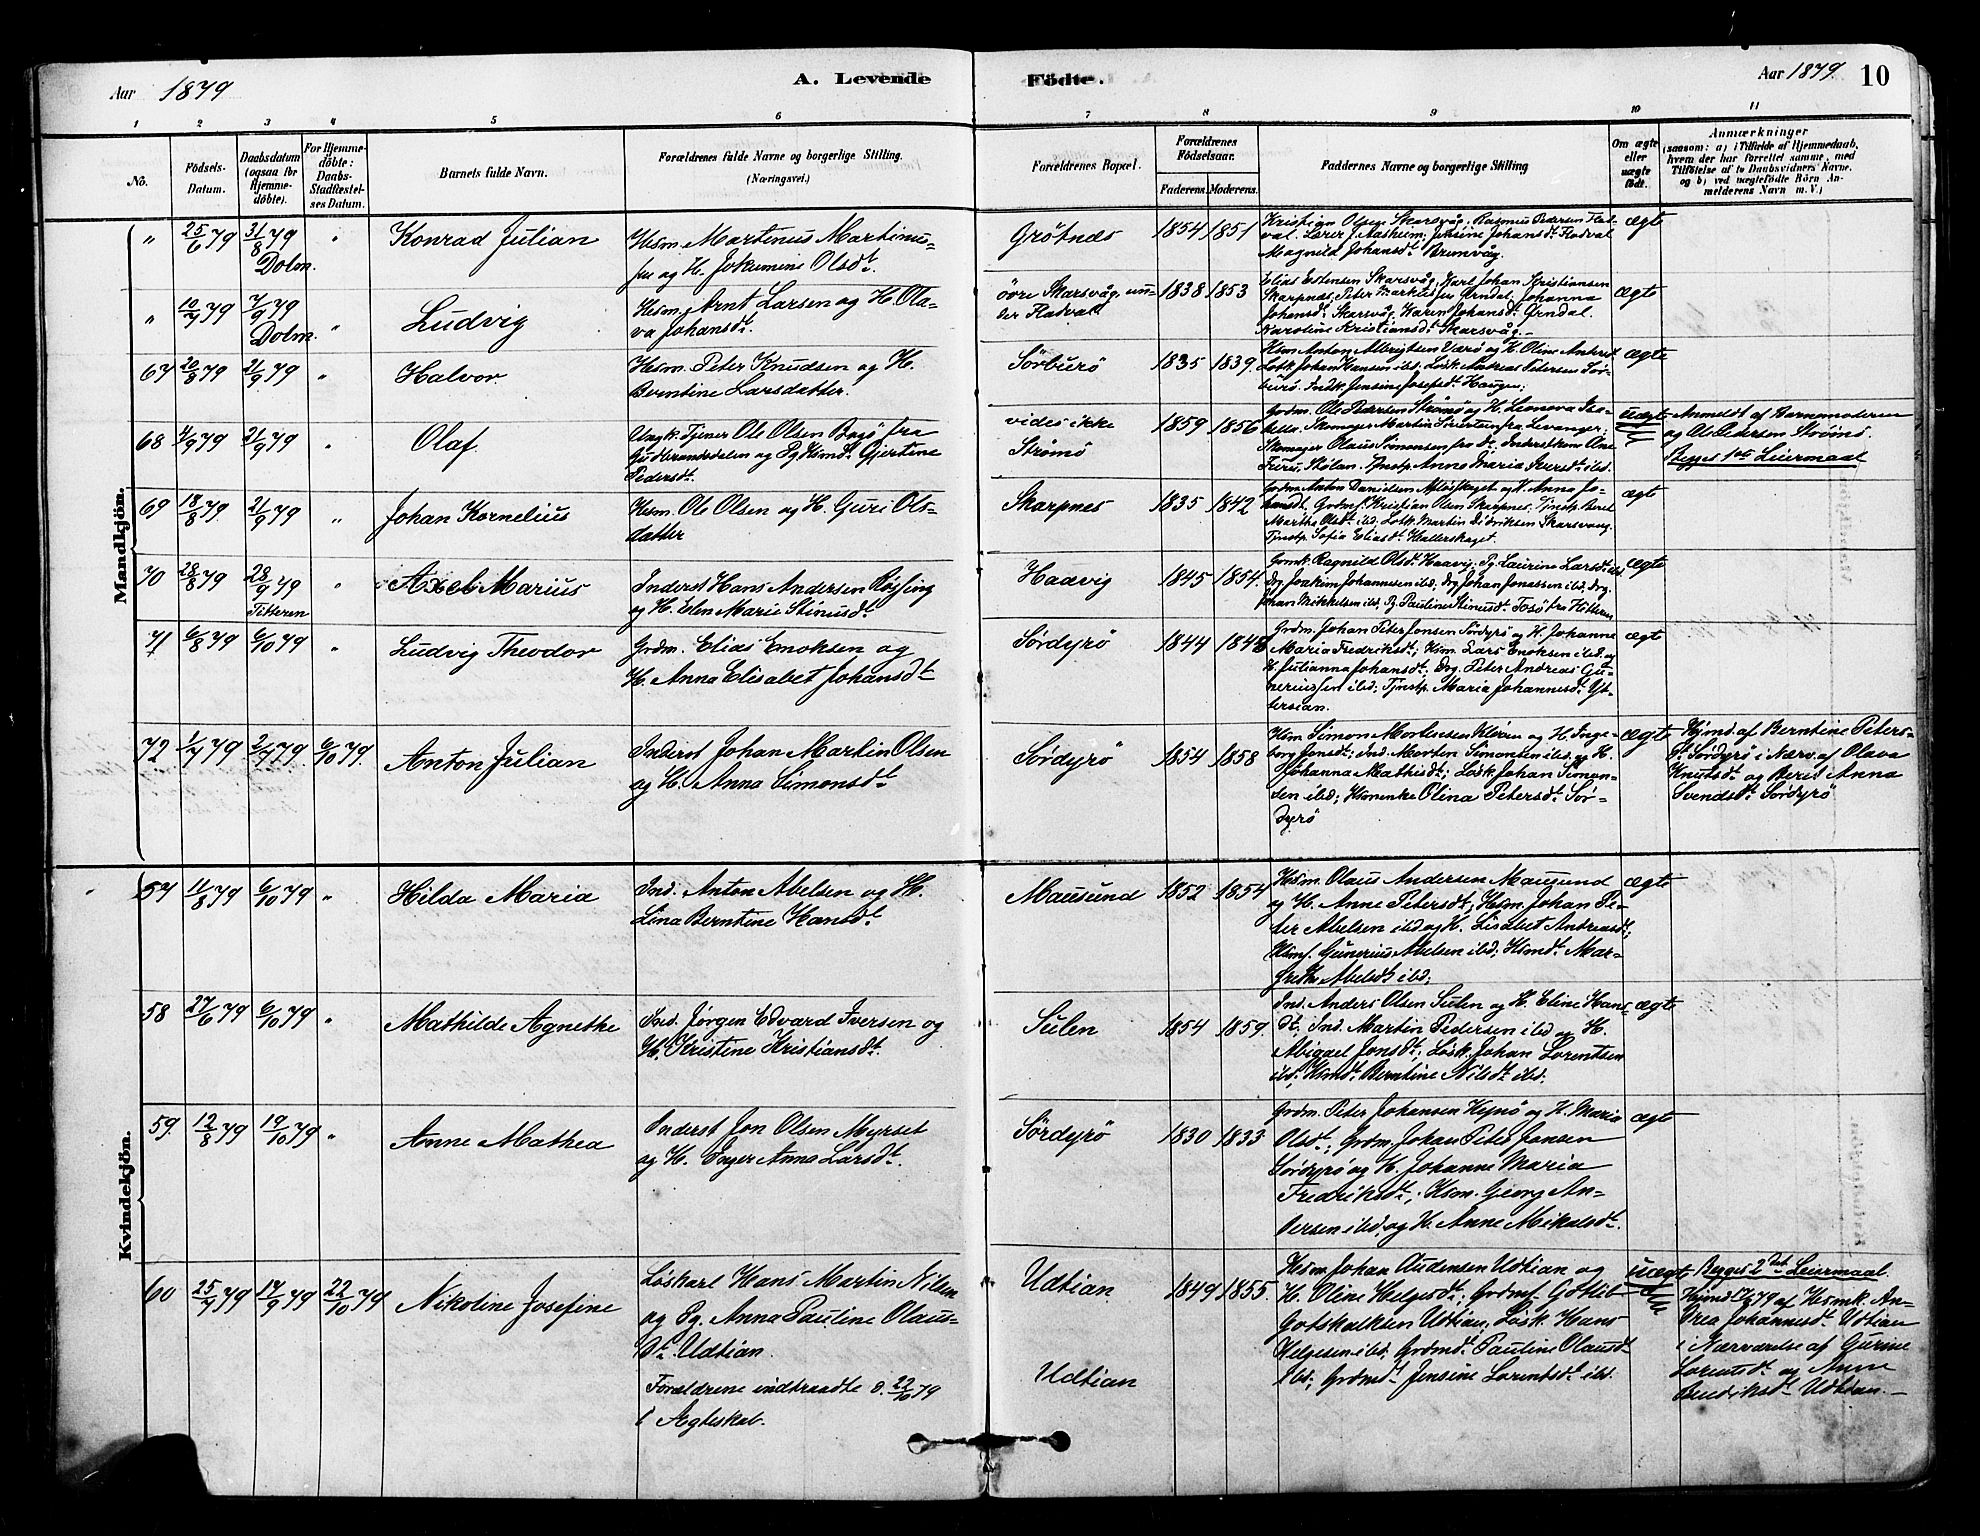 Aar 1879
A. Levende
Födte.
Aar 1879.
10
1 2 3 4 5 6 7 8 9 10 11
No.
Födsels-
Datum.
Daabsdatum
(ogsaa for
Hjemme-
døbte).
For Hjemme-
döbte:
Daabs-
Stadfæstel-
ses Datum.
Barnets fulde Navn.
Forældrenes fulde Navne og borgerlige Stilling.
(Næringsvei.)
Forældrenes Bopæl.
Forældrenes
Födselsaar.
Faderens. Moderens.
Faddernes Navne og borgerlige Stilling
Om ægte
eller
uægte
födt.
Anmærkninger
(saasom: a) i Tilfælde af Hjemmedaab,
hvem der har forrettet samme, med
Tilföielse af to Daabsvidners Navne,
og b) ved uægtefödte Börn An-
melderens Navn m. V.)
Mandkjön.
" 25/6 79 31/8 79 Dolm. " Konrad Julian
Hsm. Martinus Martinus-
sen og H. Jokumine Olsdt.
Grøtnes 1854 1851
Kristian Olsen Skarsvåg; Rasmus Pedersen Flad-
val. Lærer J. Aasheim; Jensine Johansdt. Fladval
Magnild Johansdt. Brunvåg.
ægte
" 10/7 79 7/9 79 Dolm. " Ludvig
Hsm. Arnt Larsen og H. Ola-
va Johansdt.
övre Skarsvåg un-
der Fladval
1838 1853
Elias Estensen Skarsvåg; Karl Johan Kristiansen
Skarpnes; Peter Markussen Grndal; Johanna
Johansdt. Skarsvåg; Karen Johansdt. Grndal.
Karoline Kristiansdt. Skarsvåg.-
ægte
67 20/8 79 21/9 79 " Halvor.
Hsm. Peter Knudsen og H.
Berntine Larsdatter.
Sörburö 1835 1839.
Hsm Anton Albrigtsen Værö og H. Oline Andersdt.
Lotk Johan Hansen ibd; Løsk. Matias Petersen Sör-
burö. Indk. Jensine Josefsdt. Haugen;
ægte
68 4/9 79 21/9 79 " Olaf
Ungk. Tjener Ole Olsen Bagö fra
Gudbrandsdalen og Pg. Hsmd. Gjertine
Pedersdt.
vides ikke
Strömö
1859 1856
Grdm. Ole Pedersen Strömö og H. Leonova Isa-
Skomager Olaus Simonsen fra dt.
Furu; Stölan. Tjnstp. Anne Maria Iversdt. ibd.
uægte
Anmeldt af Barnemoderen
og Ole Pedersen Strömö.
Begges 1ste Leiermaal
69 18/8 79. 21/9 79 " Johan Kornelius
Hsm. Ole Olsen og H. Guri Ols-
datter
Skarpnes 1835 1842
Grdm. Anton Danielsen og H. Anna Jo-
hansdt. Grdmf. Kristian Olsen Skarpnes; Tjnstp. Beret
Martha Olsdt. ibd; Lotk. Martin Didriksen Skarsvaag.
Tjnstp. Sofia Eliasdt. Hallerskaget.
ægte
70 28/8 79 28/9 79 Titteren " Axel Marius
Inderst Hans Andersen Røsjing
og H. Elen Marie Stinusdt.
Haavig 1845 1854.
Gomk. Ragnild Olsdt. Haavig; Pg. Laurine Larsdt. ibd.
Drg. Joakim Johannesen ibd; Drg Johan Jonassen ibd, Drg.
Johan Mikkelsen ibd; Pg. Pauline Stinusdt. Tosö fra Hitteren
ægte
71 6/8 79 6/10 79 " Ludvig Theodor
Grdm. Elias Enoksen og
H. Anna Elisabet Johansdt.
Sørdyrö 1844 1848
Grdm. Johan Peter Jonsen Sørdyrö og H. Johanne
Maria Fredriksdt.; Hsm. Lars Enoksen ibd. og
H. Julianna Johansdt; Drg. Peter Andreas Gu-
neriussen ibd; Tjnstp. Maria Johannesdt. Yt-
tersian.
ægte
72 1/7 79 2/7 79 6/10 79. Anton Julian
Inderst Johan Martin Olsen
og H. Anna Simonsdt.
Sørdyrö 1854 1858
Hsm Simon Mortensen Kløven og H. Inge-
borg Jonsdt; Ind. Morten Simonsen ibd. og H.
Johanna Mathisdt; Løsk. Johan Simon-
sen ibd; Hsmenke Olina Petersdt. Sör-
dyrö
ægte
Hjmd. af Berntine Peters-
dt. Sørdyrö i Nærv. af Olava
Knutsdt. og Berit Anna
Svendsdt. Sørdyrö
Kvindekjön.
57 11/8 79 6/10 79 " Hilda Maria
Ind. Anton Abelsen og H.
Lina Berntine Hansdt.
Mausund 1852 1854
Hsm. Olaus Andersen Mausund
og H. Anne Petersdt; Hsm. Johan Pe-
ter Abelsen ibd og H. Lisabet Andreasdt;
Hsmf. Gunerius Abelsen ibd; Hsmdt. Mar-
grethe Abelsdt ibd;
ægte
58 27/6 79 6/10 79 " Mathilde Agnethe
Ind. Jørgen Edvard Iversen og
H. Kristine Kristiansdt.
Sulen 1854 1859.
Ind. Anders Olsen Sulen og H. Eline Hans-
dt; Ind. Martin Pedersen ibd og H.
Abigael Jonsdt; Løsk. Johan Lorentsen
ibd; Hsmdt. Berntine Nilsdt ibd.
ægte
59. 12/8 79 19/10 79 " Anne Mathea
Inderst Jon Olsen Myrset
og H. Inger Anna Larsdt.
Sørdyrö 1830 1833
Grdm. Peter Johansen Hejnö og H. Maria
Olsdt; Grdm. Johan Peter Jonsen
Sørdyrö og H. Johanne Maria
Fredriksdt; Hsm. Georg An-
dersen ibd, og H. Anne Mikalsdt.
ægte
60 25/7 79 17/9 79 22/10 79 Nikoline Josefine
Løskarl Hans Martin Nilsen
og Pg. Anna Pauline Olaus-
dt. Udtian.
Forældrene indtraadte d. 22/10 79
i Ægteskab.
Udtian
Udtian
1849 1855.
Hsm. Johan Audensen Udtian og
H. Oline Helgesdt; Grdmf. Gotlib
Gotskalksen Udtian, Løsk. Hans
Helgesen ibd, Grdmdt. Pauline Olausdt.
ibd; Grdmdt. Jensine Lorentsdt ibd.
uægte
Begges 2det Leiermaal.
Hjmd 17/9 79 af Hsmk. An-
drea Johannesdt. Udtian
i Nærværelse af Gurine
Lorentsdt og Anne
Bendiksdt. Udtian.-